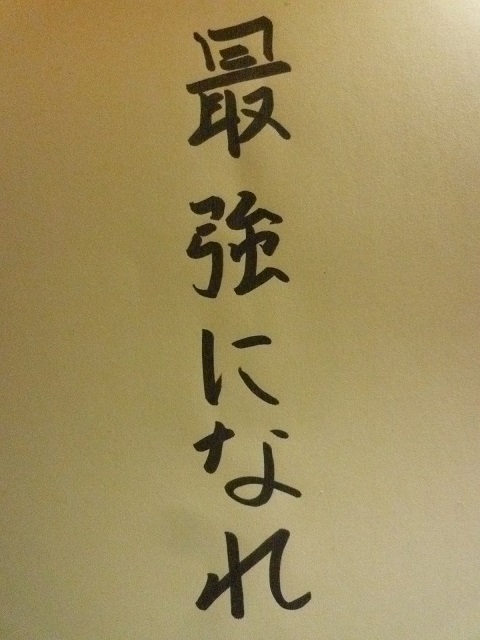 最強になれ